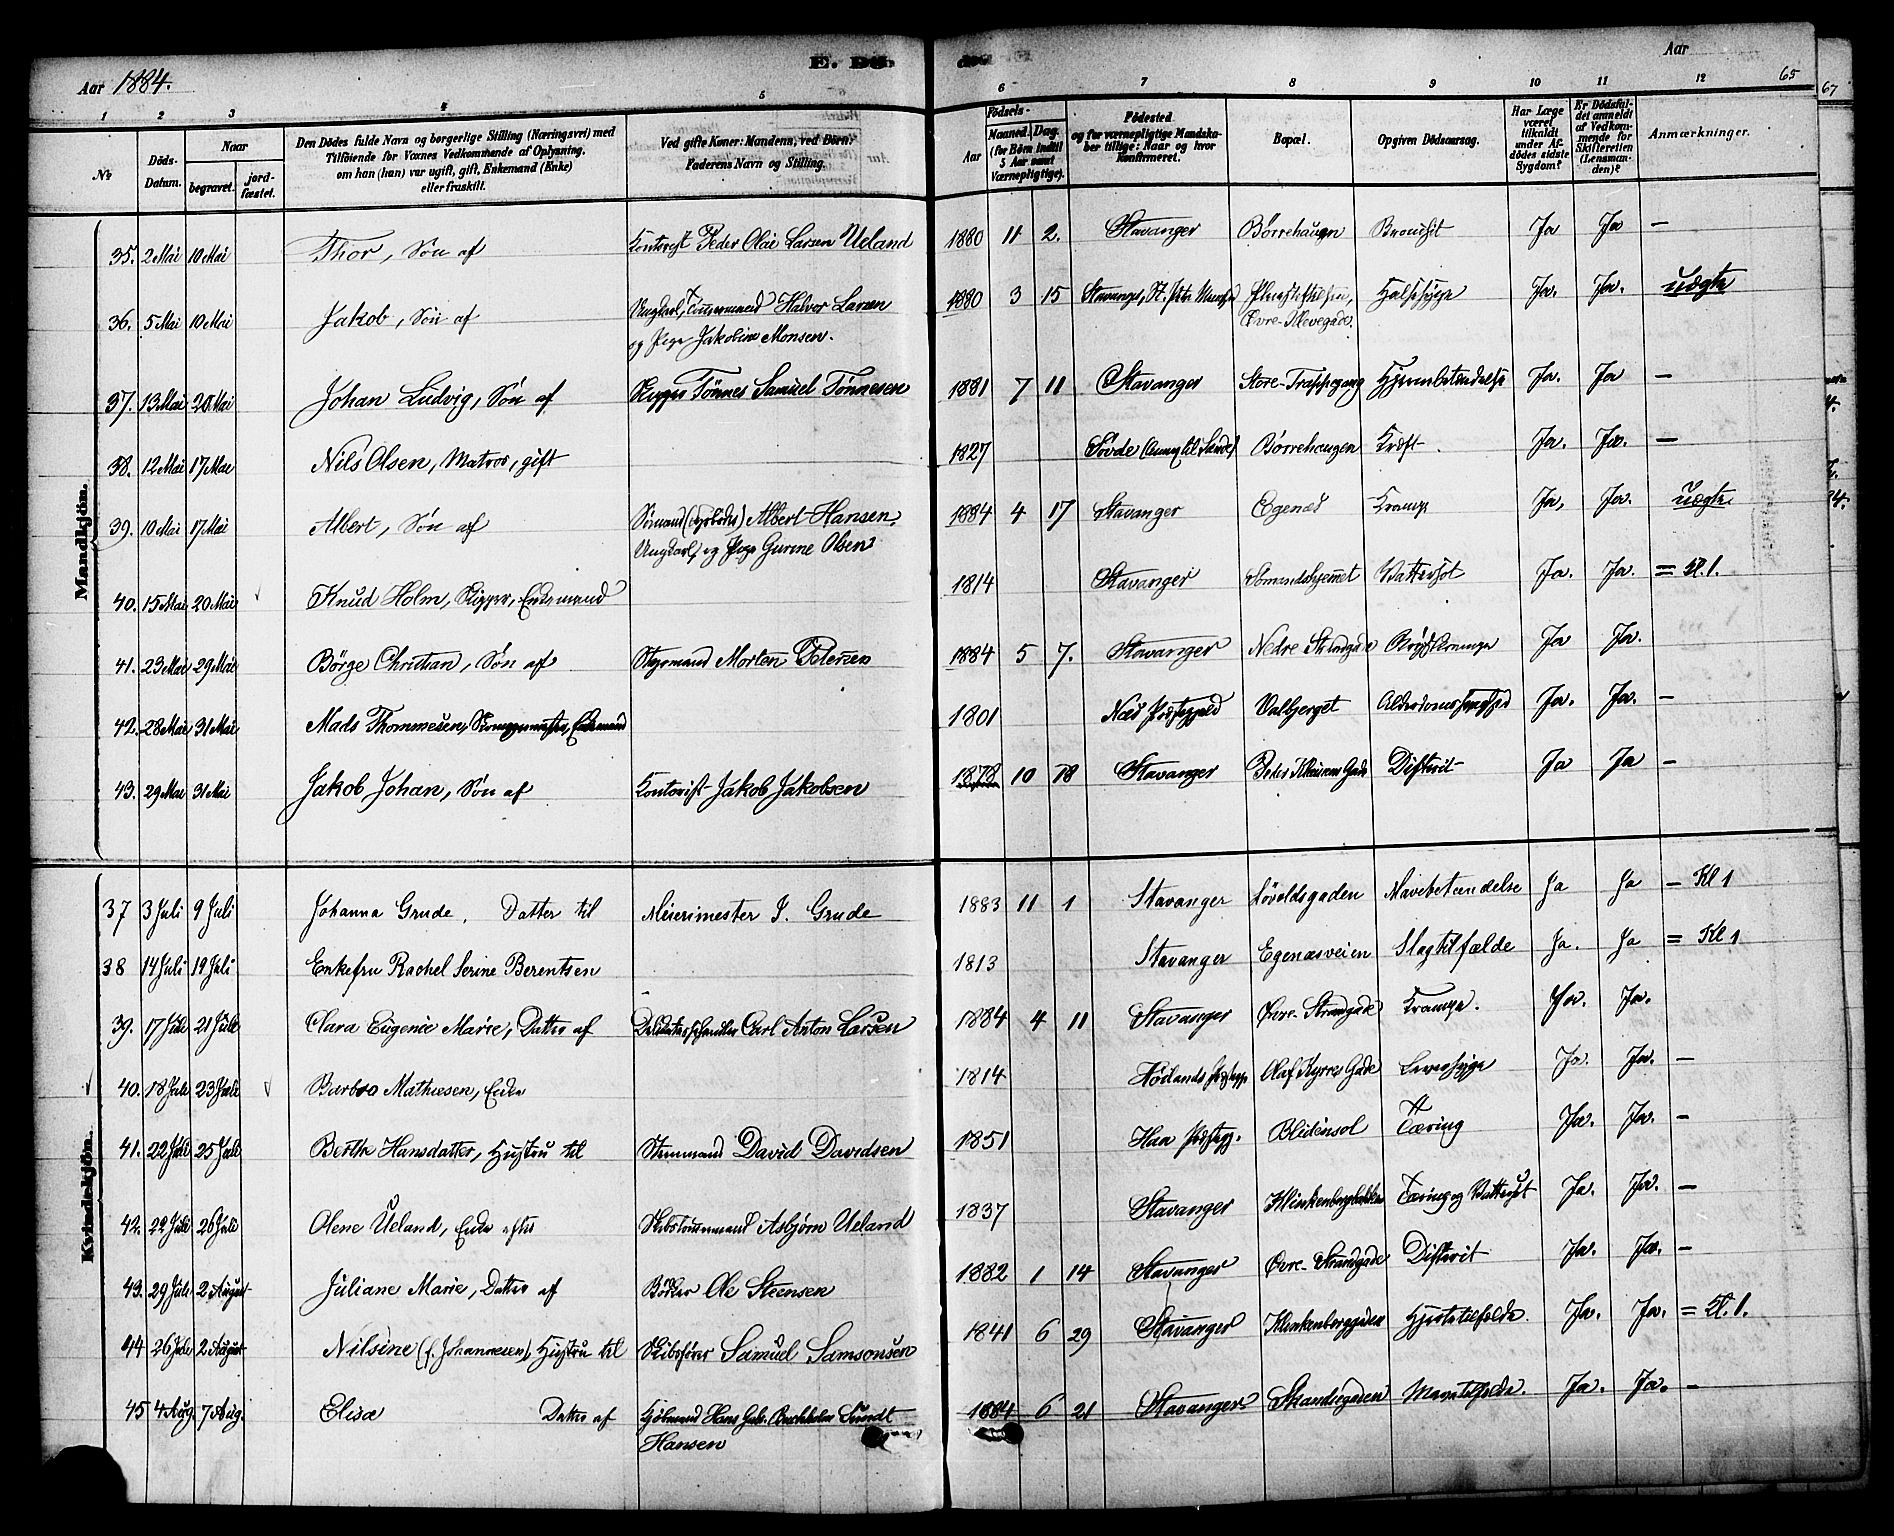 Aar 1884.
E. Dö
de
Aar
65
67
1 2 3 4 5 6 7 8 9 10 11 12
No
Döds-Datum.
Naar
begravet.
jord-fæstet.
Den Dödes fulde Navn og borgerlige Stilling (Næringsvei) med
Tilföiende for Voxnes Vedkommende af Oplysning,
om han (hun) var ugift, gift, Enkemand (Enke)
eller fraskilt.
Ved gifte Koner: Mandens, ved Börn:
Faderens Navn og Stilling.
Födsels-
Aar
Maaned. Dag.
(for Börn indtil
5 Aar samt
Værnepligtige).
Födested
og for værnepligtige Mandska-
ber tillige: Naar og hvor
Konfirmeret.
Bopæl.
Opgiven Dödsaarsag.
Har Læge
været
tilkaldt
under Af-
dödes sidste
Sygdom?
Er Dödsfal-
det anmeldt
af Vedkom-
mende for
Skifteretten
(Lensman-
den)?
Anmærkninger.
Mandkjön.
35. 2 Mai 10 Mai Thor, Sön af Kontorist Peder Olai Larsen Ueland 1880 11 2. Stavanger Börrehaugen Bronchit Ja Ja —
36. 5 Mai 10 Mai Jakob, Sön af Ungkarl, Tömmermand Halvor Larsen 1880 3 15 Stavanger, St. Petri Halssyge Ja. Ja. uægte
og Pige Jakobine Monsen. Övre-Klevegade.
37. 13 Mai 20 Mai Johan Ludvig, Sön af Skipper Tönnes Samuel Tönnesen 1881 7 11 Stavanger Store-Trappegang Hjernebetændelse Ja. Ja —
38. 12 Mai 17 Mai Nils Olsen, Matros, gift 1827 Sövde Börrehaugen Kræft Ja. Ja. —
39. 10 Mai 17 Mai Albert, Sön af Sömand Albert Hansen, 1884 4 17 Stavanger Egenæs Krampe Ja, Ja. uægte
Ungkarl, og Pige Gurine Olsen
40. 15 Mai 20 Mai Knud Holm, Skipper, Enkemand 1814 Stavanger Sömandshjemmet Vattersot Ja. Ja. = Kl. 1.
41. 23 Mai 29 Mai Börge Christian, Sön af Styrmand Morten Petersen 1884 5 7. Stavanger Nedre Strandgade Brystkrampe Ja Ja.
42. 28 Mai 31 Mai Mads Thommesen, Enkemand 1801 Næs Præstegjeld Valbjerget Alderdomssvaghed Ja. Ja. —
43. 29 Mai 31 Mai Jakob Johan, Sön af Kontorist Jakob Jakobsen 1878 10 18 Stavanger Peder Klausens Gade Difterit Ja Ja —
Kvindekjön.
37 3 Juli 9 Juli Johanna Grude, Datter til Meierimester J. Grude 1883 11 1 Stavanger Lövoldsgaden Mavebetændelse Ja Ja — Kl 1
38 14 Juli 19 Juli Enkefru Rachel Serine Berentsen 1813 Stavanger Egenæsveien Slagtilfælde Ja. Ja = Kl 1
39. 17 Juli 21 Juli Clara Eugenie Marie, Datter af Delikatessehandler Carl Anton Larsen 1884 4 11 Stavanger Övre-Strandgade Krampe. Ja. Ja.
40. 18 Juli 23 Juli Barbro Mathiesen, Enke 1814 Höilands Prstgj. Olaf Kyrres Gade Leversyge Ja. Ja. —
41. 22 Juli 25 Juli Berthe Hansdatter, Hustru til Stenmand David Davidsen 1851 Haa Prstgj. Blidensol Tæring Ja. Ja. —
42. 22 Juli 26 Juli Olene Ueland, Enke efter Skibstömmermand Asbjörn Ueland 1837 Stavanger Klinkenbergbakken Tæring og Vattersot Ja. Ja. —
43. 29 Juli 2 August Juliane Marie, Datter af Bödker Ole Steensen 1882 1 14 Stavanger Övre-Strandgade Difterit Ja. Ja. —
44 26 Juli 2 August Nilsine (f. Johannesen), Hustru til Skibsförer Samuel Samsonsen 1841 6 29 Stavanger Klinkenberggaden Hjertetilfælde. Ja. Ja. = Kl. 1.
45 4 Aug 7 Aug. Elise Datter af Kjöbmand Hans Gab. Buchholm Sundt 1884 6 21 Stavanger Strandgaden Mavetilfælde. Ja. Ja. —
Hansen